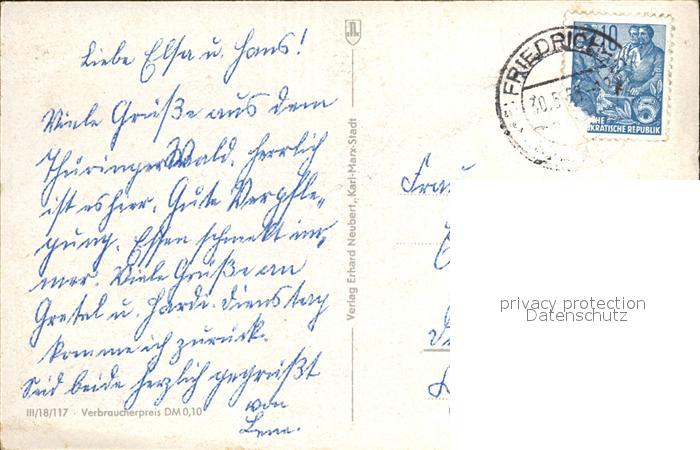 Liebe Elsa u. Hans!
Viele Grüße aus dem
Thüringer Wald. Herrlich
ist es hier. Gute Verpfle-
gung. Essen schmekt im-
mer. Viele Grüße an
Gretel u. Hardi. Dienstag
komme ich zurück.
Seid beide herzlich gegrüßt
von
Lene.
III/18/117 · Verbraucherpreis DM 0,10
Verlag Erhard Neubert, Karl-Marx-Stadt
FRIEDRICH
10
KRATISCHE REPUBLIK
Frau
privacy protection
Datenschutz